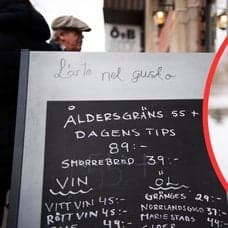 Ö&B
L'arte nel gusto
ÅLDERSGRÄNS 55 +
DAGENS TIPS
89:-
SMÖRREBRÖD 39:-
VIN
VITT VIN 45:-
RÖTT VIN 45:-
ÖL
GRÄNGES 29:-
NORRLANDSGULD 39:-
MARIESTADS 44:-
CIDER 44:-